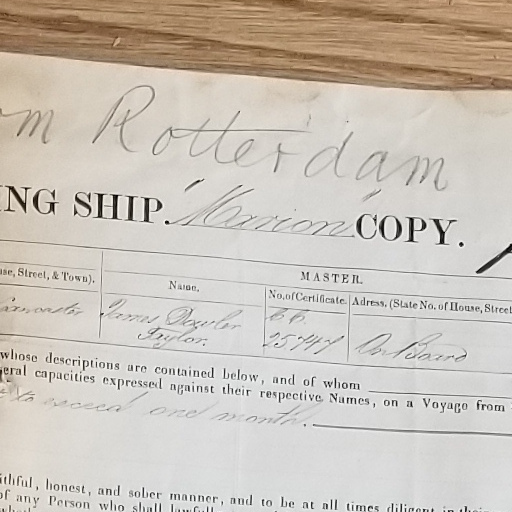 om Rotterdam
ING SHIP. "Marion" COPY.
MASTER.
use, Street, & Town).
Name.
No. of Certificate.
Adress, (State No. of House, Street
Lancaster
James Dowler
Taylor.
25747
On Board
whose descriptions are contained below, and of whom
eral capacities expressed against their respective Names, on a Voyage from
to exceed one month.
ithful, honest, and sober manner, and to be at all times diligent in their
of any Person who shall lawfull